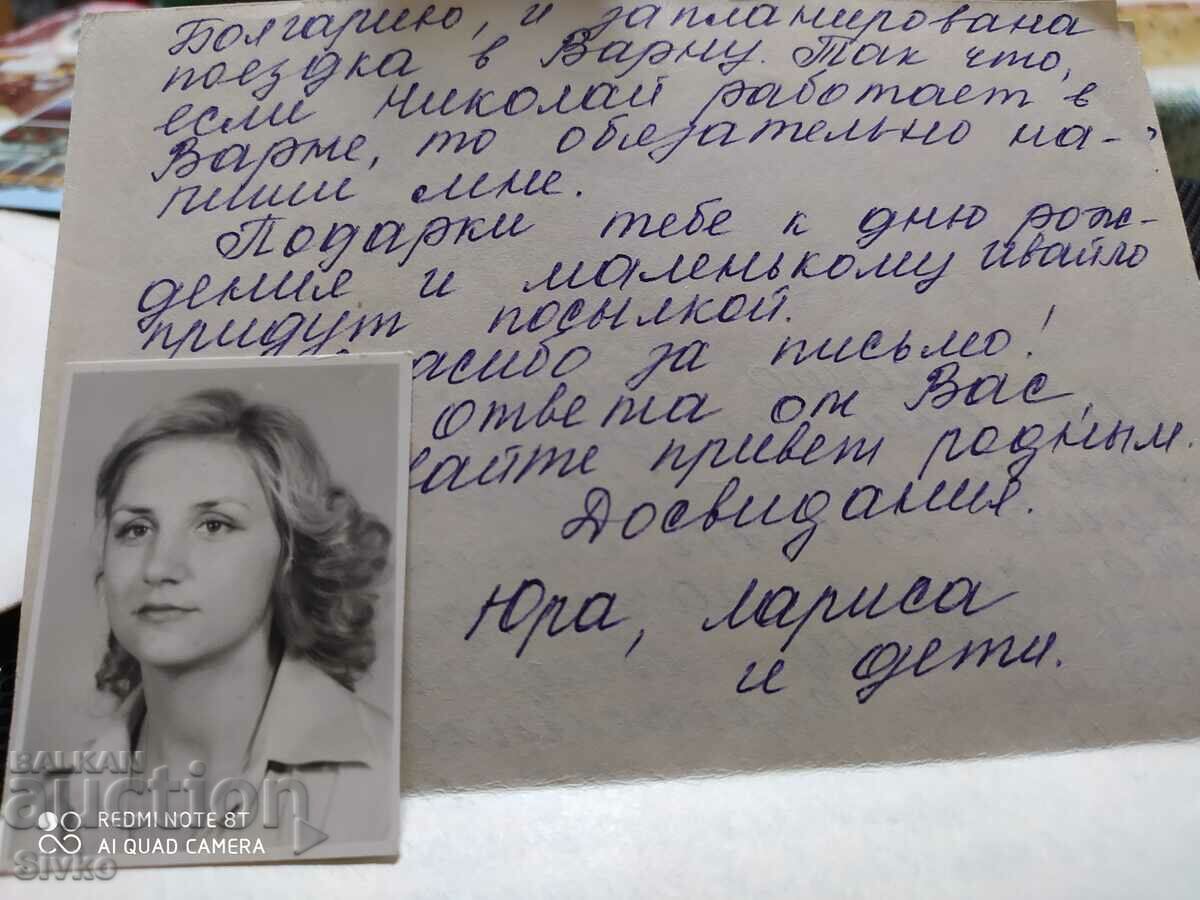 Болгарию, и запланирована
поездка в Варну. Так что,
если Николай работает в
Варне, то обязательно на-
пиши мне.
Подарки тебе к дню рож-
дения и маленькому Ивайло
придут посылкой.
асибо за письмо!
ответа от Вас,
вайте привет родным.
Досвидания.
Юра, Лариса
и дети.
BALKAN
auction
REDMI NOTE 8T
AI QUAD CAMERA
Sivko